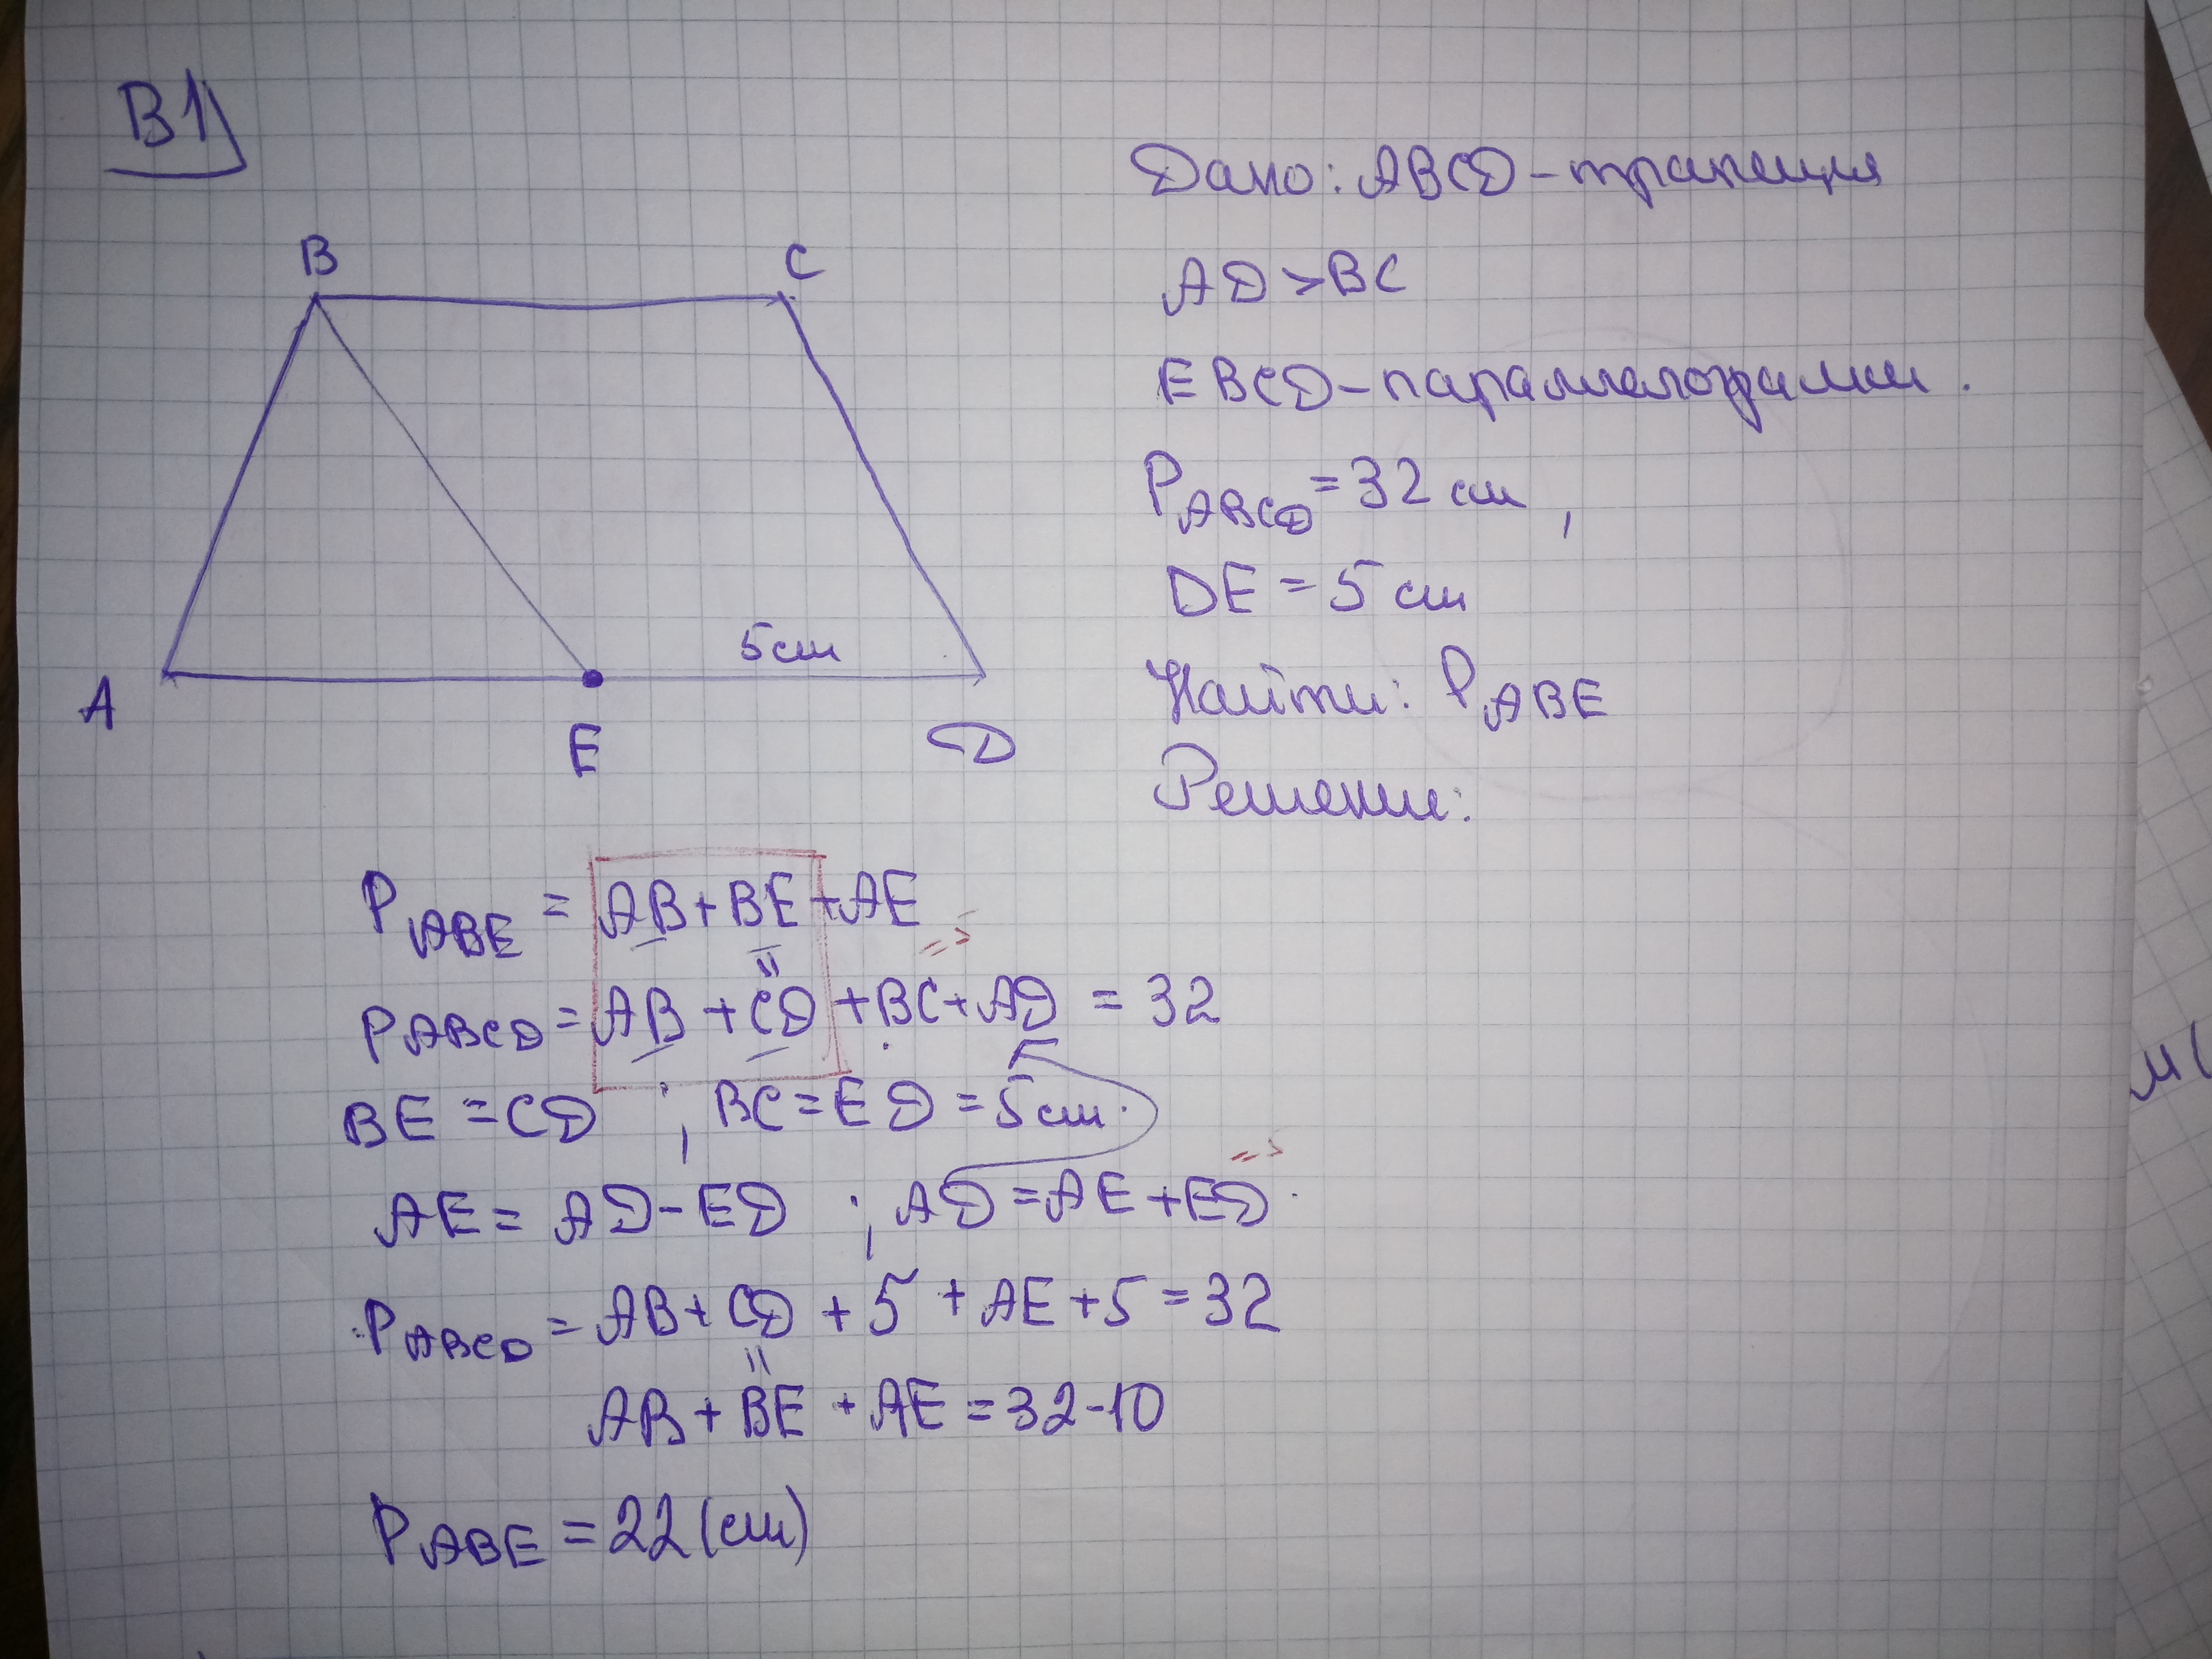 В1
B
C
A
E
D
5см
Дано: ABCD - трапеция
AD > BC
EBCD - параллелограмм.
P ABCD = 32 см,
DE = 5 см
Найти: P ABE
Решение:
P ABE = AB + BE + AE
=>
"
P ABCD = AB + CD + BC + AD = 32
BE = CD ; BC = ED = 5 см.
=>
AE = AD - ED ; AD = AE + ED.
P ABCD = AB + CD + 5 + AE + 5 = 32
"
AB + BE + AE = 32 - 10
P ABE = 22 (см)